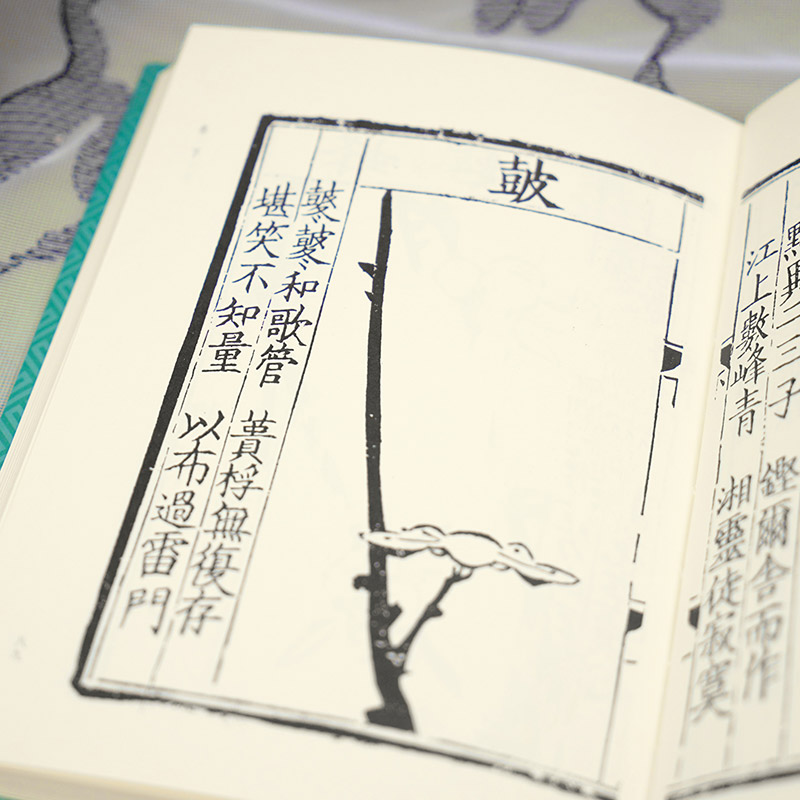 點與二三子 鏗爾舍而作
江上數峰青 湘靈徒寂寞
皷
鼕鼕和歌管 蕢桴無復存
堪笑不知量 以布過雷門